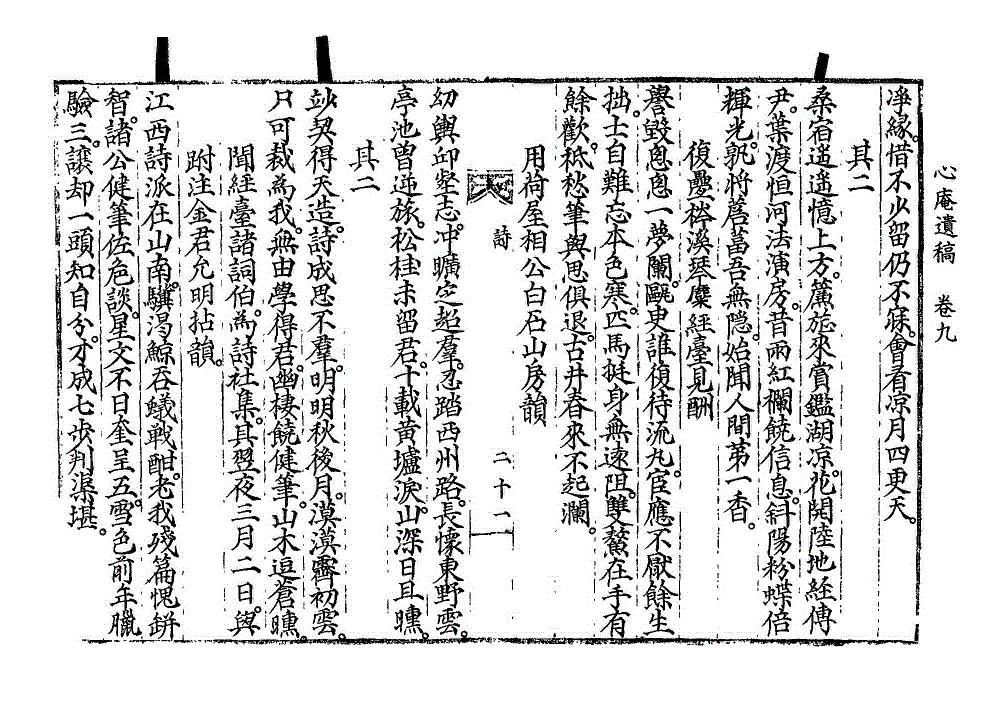 心庵遺稿　卷九
凈緣。惜不少留仍不寐。會看凉月四更天。
其二
桑宿遥遥憶上方。篤旅來賞鑑湖凉。花開陸地經傳
尹。葉渡恒河法演房。昔雨紅欄饒信息。斜陽粉蝶倍
揮光。孰將薝葍吾無隐。始聞人間苐一香。
復疊梣溪琴麋經臺見酬
譽毁悤悤一夢闌。甌臾誰復待流丸。宦應不厭餘生
拙。士自難忘本色寒。匹馬挺身無速阻。雙鰲在手有
餘歡。秪愁筆與思俱退。古井春來不起瀾。
用荷屋相公白石山房韻
詩
二十一
幼輿邱壑志。冲曠定超羣。忍踏西州路。長懷東野雲。
亭池曾逆旅。松桂未留君。十載黄壚淚。山深日且曛。
其二
竗契得天造。詩成思不羣。明明秋後月。漠漠霽初雲。
只可裁為我。無由學得君。幽棲饒健筆。山木逗蒼曛。
聞經臺諸詞伯。為詩社集。其翌夜三月二日。與
跗注金君允明拈韻。
江西詩派在山南。驥渴鯨吞蟻戰酣。老我殘篇愧餠
智。諸公健筆佐危談。星文不日奎呈五。雪色前年臘
驗三。讓却一頭知自分。才成七步判渠堪。